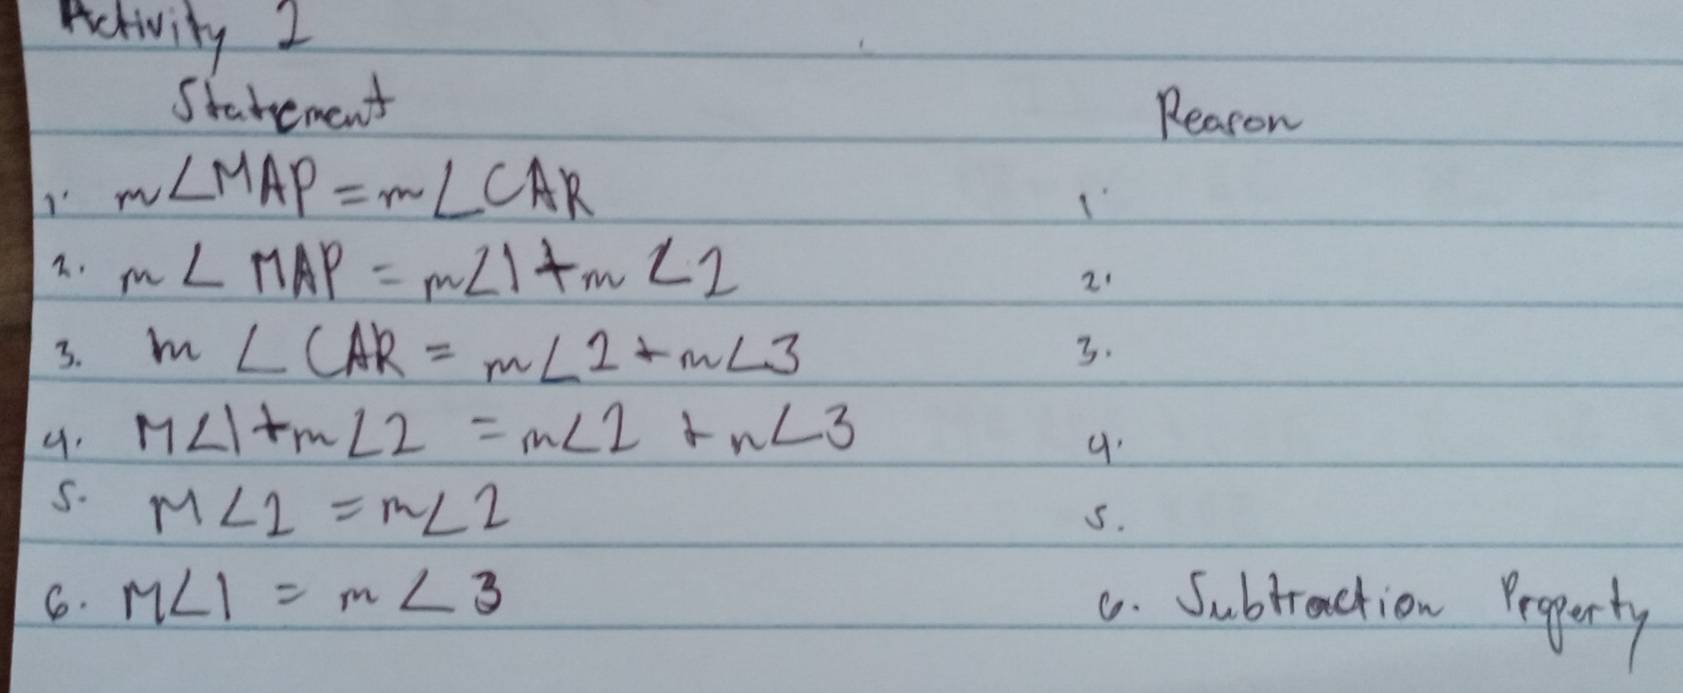 Activity 2
Statement Reason
1. m∠MAP = m∠CAR 1.
2. m∠MAP = m∠1 + m∠2 2.
3. m∠CAR = m∠2 + m∠3 3.
4. M∠1 + m∠2 = m∠2 + n∠3 4.
5. M∠2 = m∠2 5.
6. M∠1 = m∠3 6. Subtraction Property